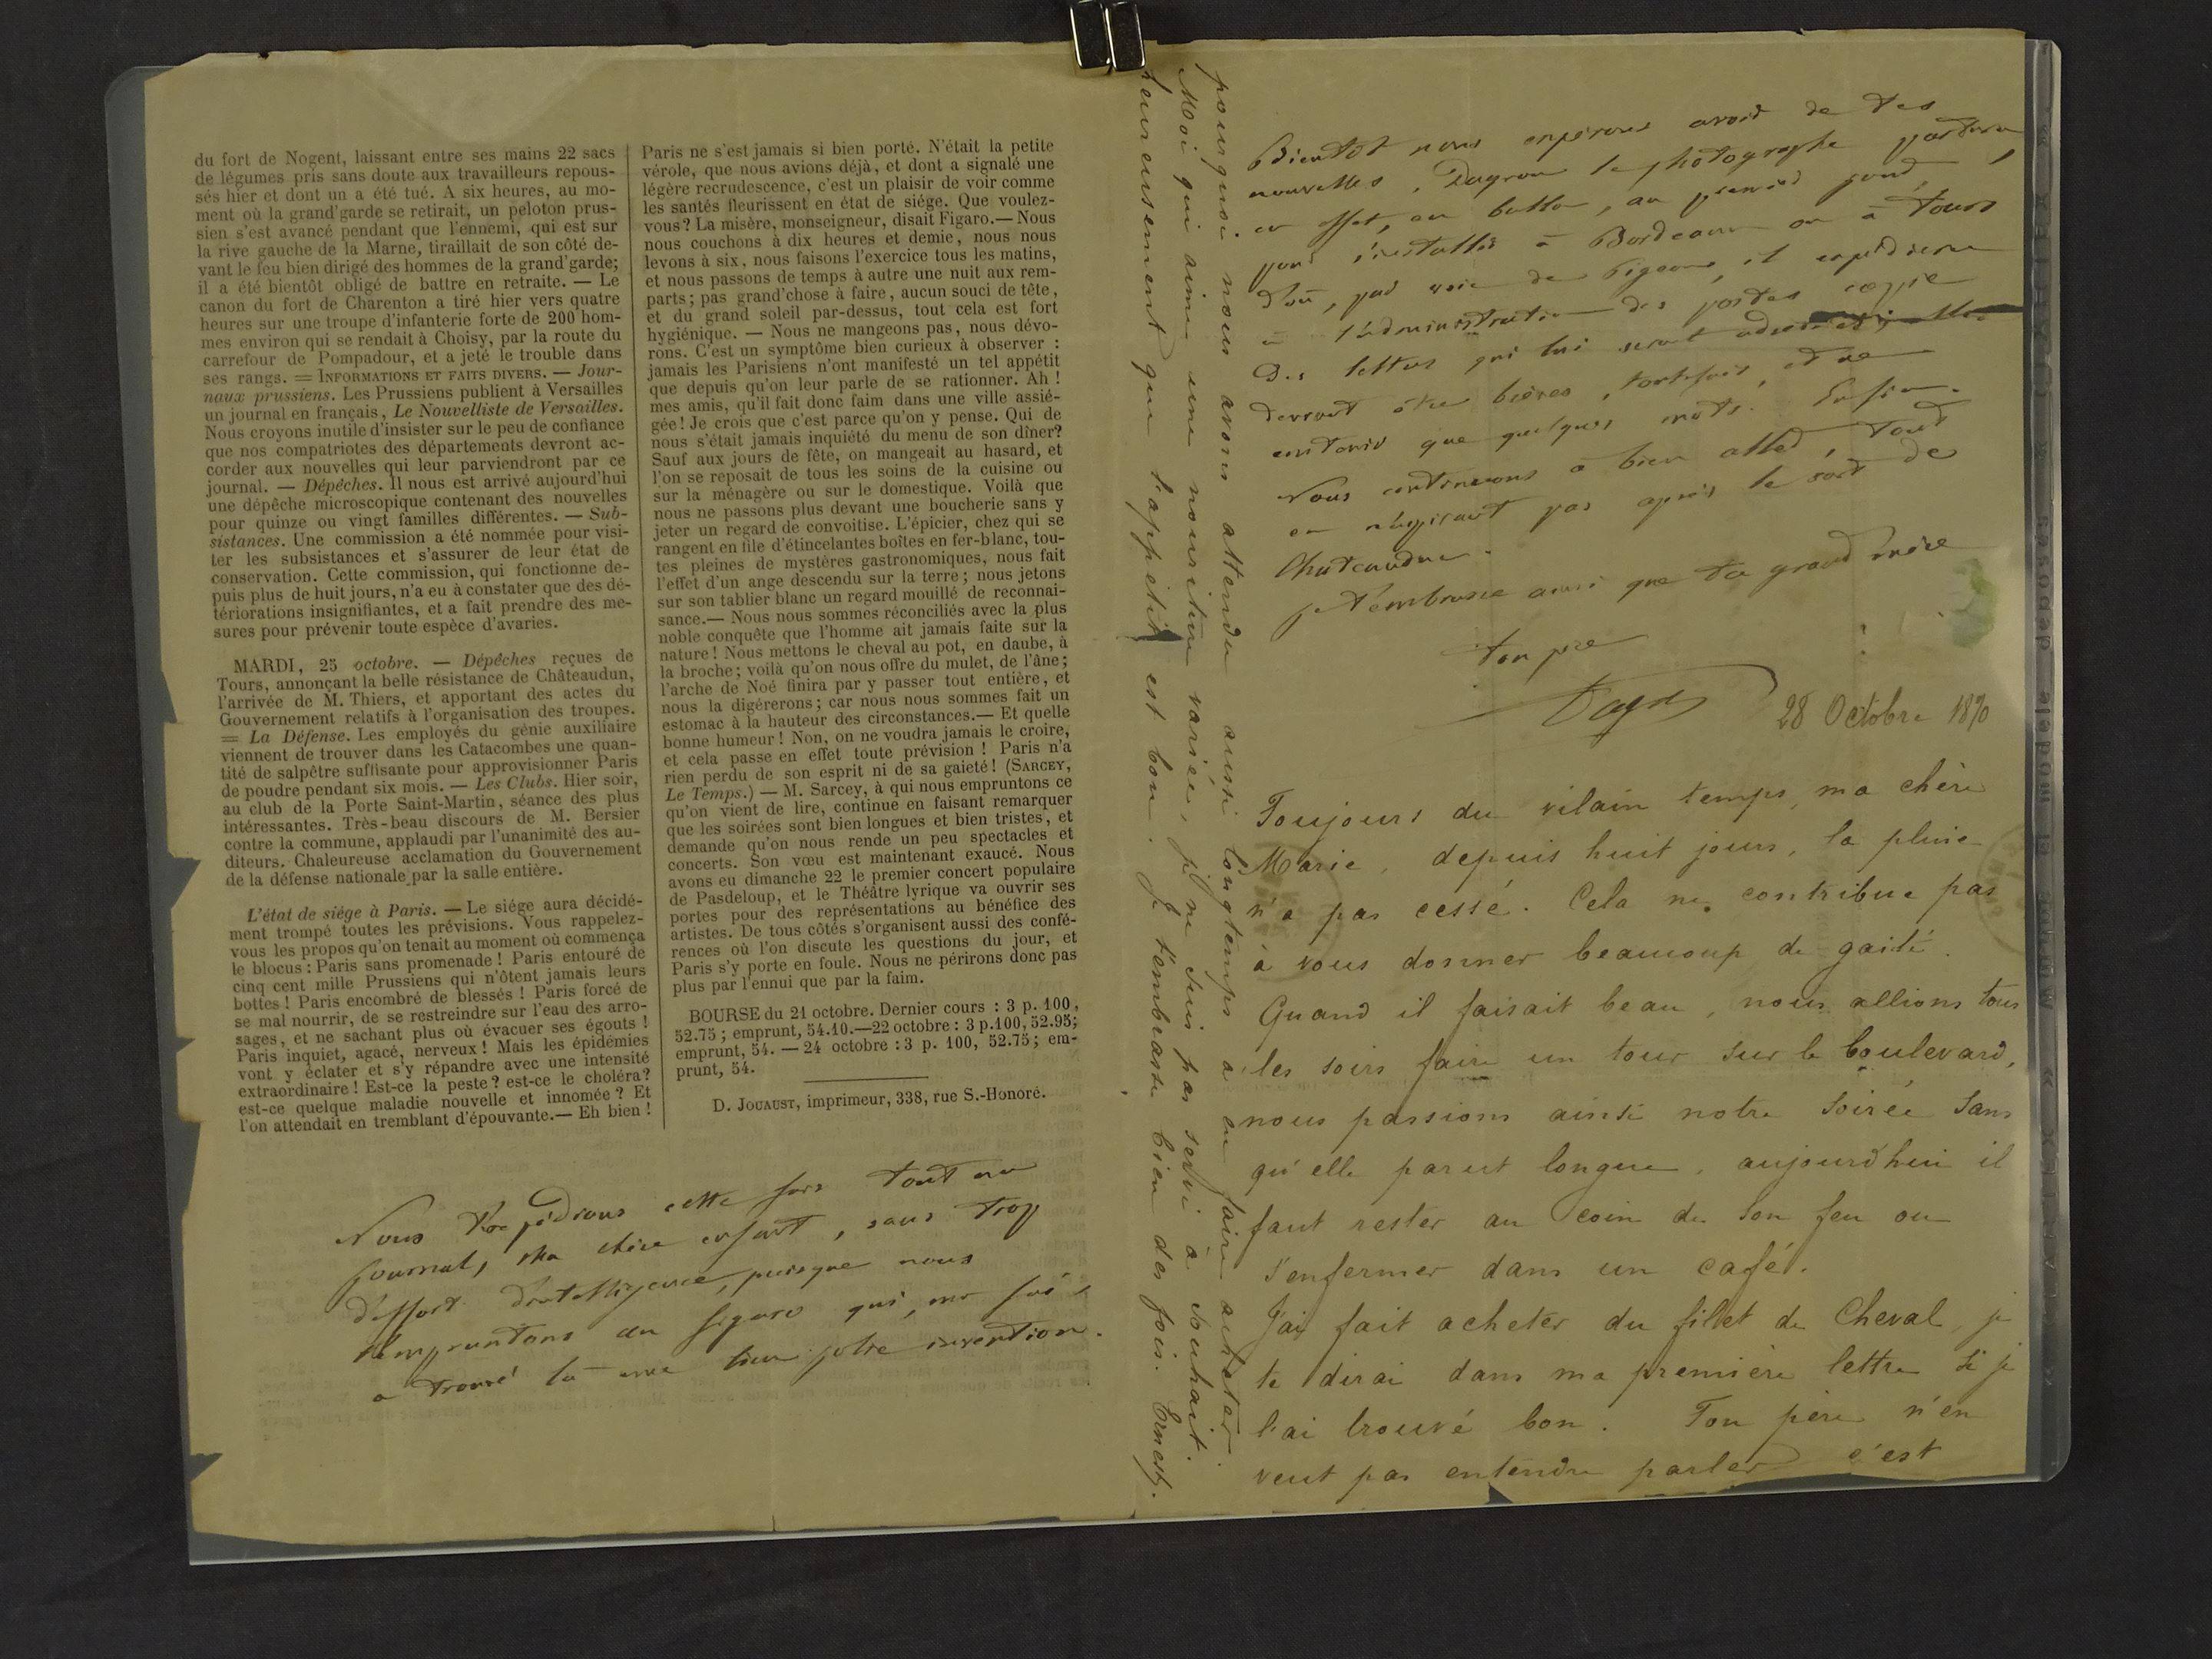 du fort de Nogent, laissant entre ses mains 22 sacs
de légumes pris sans doute aux travailleurs repous-
sés hier et dont un a été tué. A six heures, au mo-
ment où la grand'garde se retirait, un peloton prus-
sien s'est avancé pendant que l'ennemi, qui est sur
la rive gauche de la Marne, tiraillait de son côté de-
vant le feu bien dirigé des hommes de la grand'garde;
il a été bientôt obligé de battre en retraite. — Le
canon du fort de Charenton a tiré hier vers quatre
heures sur une troupe d'infanterie forte de 200 hom-
mes environ qui se rendait à Choisy, par la route du
carrefour de Pompadour, et a jeté le trouble dans
ses rangs. = INFORMATIONS ET FAITS DIVERS. — Jour-
naux prussiens. Les Prussiens publient à Versailles
un journal en français, Le Nouvelliste de Versailles.
Nous croyons inutile d'insister sur le peu de confiance
que nos compatriotes des départements devront ac-
corder aux nouvelles qui leur parviendront par ce
journal. — Dépêches. Il nous est arrivé aujourd'hui
une dépêche microscopique contenant des nouvelles
pour quinze ou vingt familles différentes. — Sub-
sistances. Une commission a été nommée pour visi-
ter les subsistances et s'assurer de leur état de
conservation. Cette commission, qui fonctionne de-
puis plus de huit jours, n'a eu à constater que des dé-
tériorations insignifiantes, et a fait prendre des me-
sures pour prévenir toute espèce d'avaries.
MARDI, 25 octobre. — Dépêches reçues de
Tours, annonçant la belle résistance de Châteaudun,
l'arrivée de M. Thiers, et apportant des actes du
Gouvernement relatifs à l'organisation des troupes.
= La Défense. Les employés du génie auxiliaire
viennent de trouver dans les Catacombes une quan-
tité de salpêtre suffisante pour approvisionner Paris
de poudre pendant six mois. — Les Clubs. Hier soir,
au club de la Porte Saint-Martin, séance des plus
intéressantes. Très-beau discours de M. Bersier
contre la commune, applaudi par l'unanimité des au-
diteurs. Chaleureuse acclamation du Gouvernement
de la défense nationale par la salle entière.
L'état de siége à Paris. — Le siége aura décidé-
ment trompé toutes les prévisions. Vous rappelez-
vous les propos qu'on tenait au moment où commença
le blocus : Paris sans promenade ! Paris entouré de
cinq cent mille Prussiens qui n'ôtent jamais leurs
bottes ! Paris encombré de blessés ! Paris forcé de
se mal nourrir, de se restreindre sur l'eau des arro-
sages, et ne sachant plus où évacuer ses égouts !
Paris inquiet, agacé, nerveux ! Mais les épidémies
vont y éclater et s'y répandre avec une intensité
extraordinaire ! Est-ce la peste ? est-ce le choléra?
est-ce quelque maladie nouvelle et innomée ? Et
l'on attendait en tremblant d'épouvante.— Eh bien !
Paris ne s'est jamais si bien porté. N'était la petite
vérole, que nous avions déjà, et dont a signalé une
légère recrudescence, c'est un plaisir de voir comme
les santés fleurissent en état de siége. Que voulez-
vous ? La misère, monseigneur, disait Figaro.— Nous
nous couchons à dix heures et demie, nous nous
levons à six, nous faisons l'exercice tous les matins,
et nous passons de temps à autre une nuit aux rem-
parts ; pas grand'chose à faire, aucun souci de tête,
et du grand soleil par-dessus, tout cela est fort
hygiénique. — Nous ne mangeons pas, nous dévo-
rons. C'est un symptôme bien curieux à observer :
jamais les Parisiens n'ont manifesté un tel appétit
que depuis qu'on leur parle de se rationner. Ah !
mes amis, qu'il fait donc faim dans une ville assié-
gée ! Je crois que c'est parce qu'on y pense. Qui de
nous s'était jamais inquiété du menu de son dîner?
Sauf aux jours de fête, on mangeait au hasard, et
l'on se reposait de tous les soins de la cuisine ou
sur la ménagère ou sur le domestique. Voilà que
nous ne passons plus devant une boucherie sans y
jeter un regard de convoitise. L'épicier, chez qui se
rangent en file d'étincelantes boîtes en fer-blanc, tou-
tes pleines de mystères gastronomiques, nous fait
l'effet d'un ange descendu sur la terre ; nous jetons
sur son tablier blanc un regard mouillé de reconnai-
sance.— Nous nous sommes réconciliés avec la plus
noble conquête que l'homme ait jamais faite sur la
nature ! Nous mettons le cheval au pot, en daube, à
la broche; voilà qu'on nous offre du mulet, de l'âne;
l'arche de Noé finira par y passer tout entière, et
nous la digérerons ; car nous nous sommes fait un
estomac à la hauteur des circonstances.— Et quelle
bonne humeur ! Non, on ne voudra jamais le croire,
et cela passe en effet toute prévision ! Paris n'a
rien perdu de son esprit ni de sa gaieté ! (SARCEY,
Le Temps.) — M. Sarcey, à qui nous empruntons ce
qu'on vient de lire, continue en faisant remarquer
que les soirées sont bien longues et bien tristes, et
demande qu'on nous rende un peu spectacles et
concerts. Son vœu est maintenant exaucé. Nous
avons eu dimanche 22 le premier concert populaire
de Pasdeloup, et le Théâtre lyrique va ouvrir ses
portes pour des représentations au bénéfice des
artistes. De tous côtés s'organisent aussi des confé-
rences où l'on discute les questions du jour, et
Paris s'y porte en foule. Nous ne périrons donc pas
plus par l'ennui que par la faim.
BOURSE du 21 octobre. Dernier cours : 3 p. 100,
52.75 ; emprunt, 54.10.—22 octobre : 3 p.100, 52.95;
emprunt, 54. — 24 octobre : 3 p. 100, 52.75 ; em-
prunt, 54.
D. JOUAUST, imprimeur, 338, rue S.-Honoré.
Nous t'expédions cette fois tout un
journal, ma chère enfant, sans trop
d'effort d'intelligence, puisque nous
l'empruntons au figaro qui, ma foi,
a trouvé là une bien jolie invention.
Bientot nous espérons avoir de tes
nouvelles. Dagron le photographe partira
en effet, en ballon, au premier jour,
pour s'installer à Bordeaux ou à Tours
d'où, par voie de Pigeons, il expédiera
à l'administration des postes copie
Des lettres qui lui seront adressées
devront être brèves, toutefois, et ne
contenir que quelques mots. Enfin.
Nous continuons à bien aller, tout
en n'aspirant pas après le sort de
Chateaudun.
Je t'embrasse ainsi que ta grand mère
ton père
28 Octobre 1870
Toujours du vilain temps, ma chère
Marie, depuis huit jours, la pluie
n'a pas cessé. Cela ne contribue pas
à vous donner beaucoup de gaité.
Quand il faisait beau, nous allions tous
les soirs faire un tour sur le boulevard,
nous passions ainsi notre soirée sans
qu'elle parut longue, aujourd'hui il
faut rester au coin de son feu ou
s'enfermer dans un café.
J'ai fait acheter du filet de Cheval, je
te dirai dans ma première lettre si je
l'ai trouvé bon. Ton père n'en
veut pas entendre parler c'est
pourquoi nous avons attendu aussi longtemps a en faire acheter.
Moi qui aime une nourriture variée, je ne suis pas servi à souhait.
heureusement que l'appetit est bon. Je t'embrasse bien des fois. Ernest.